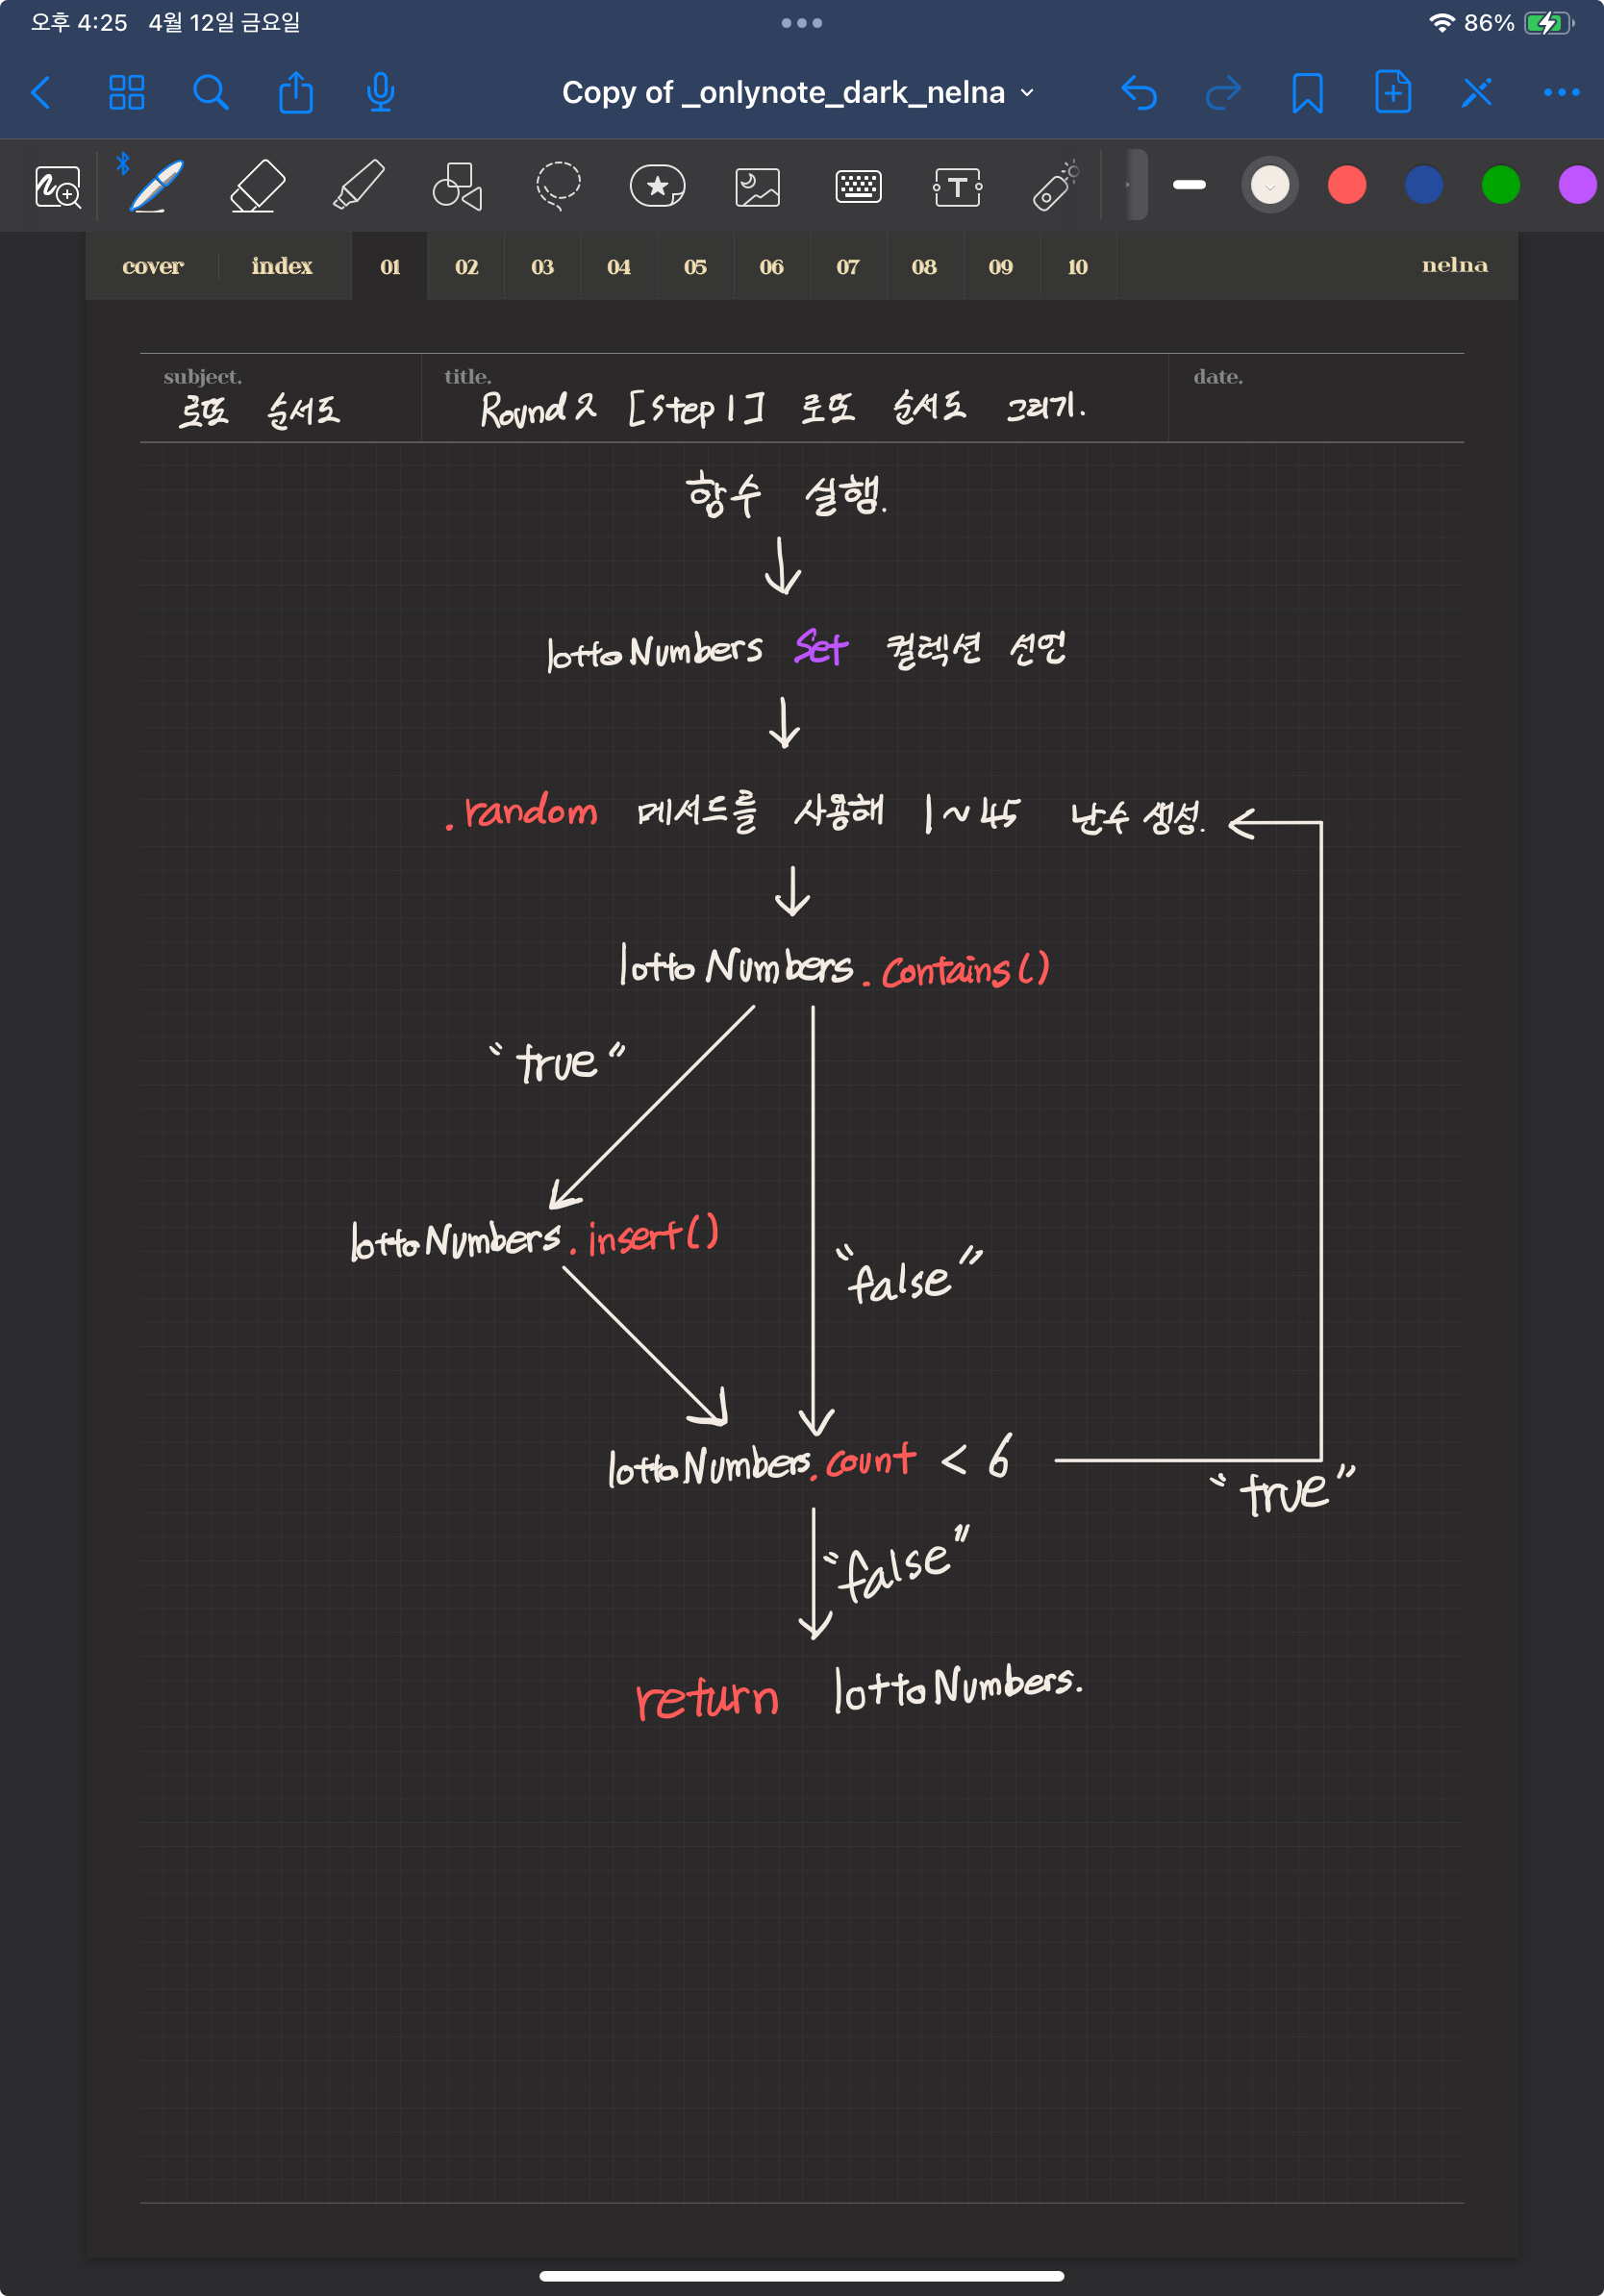 오후 4:25 4월 12일 금요일 86%
Copy of _onlynote_dark_nelna
cover index 01 02 03 04 05 06 07 08 09 10 nelna
subject. title. date.
로또 순서도 Round 2 [Step 1] 로또 순서도 그리기.
함수 실행.
lottoNumbers Set 컬렉션 선언
.random 메서드를 사용해 1~45 난수 생성.
lottoNumbers.contains()
"true"
lottoNumbers.insert()
"false"
lottoNumbers.count < 6
"true"
"false"
return lottoNumbers.